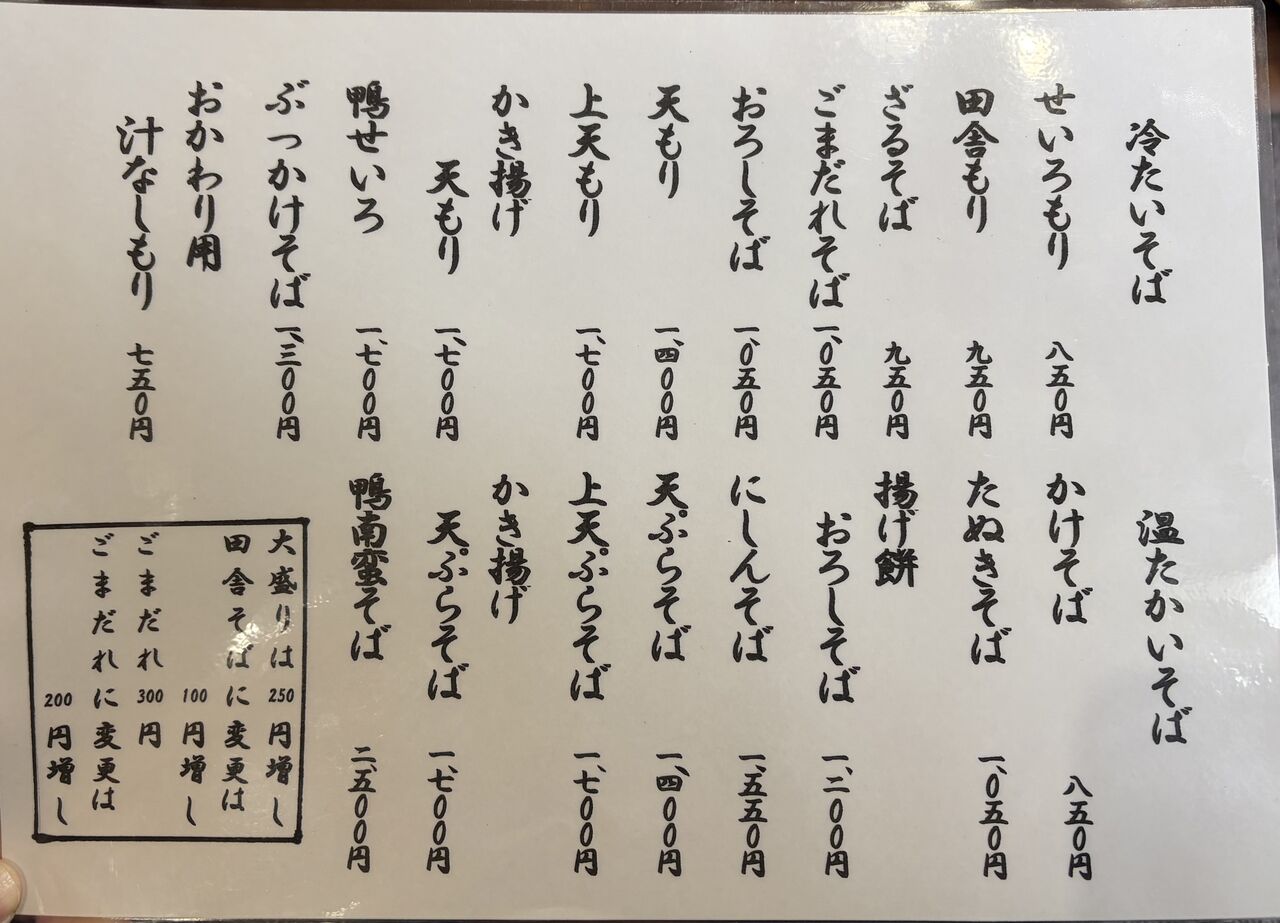 冷たいそば
せいろもり 八五〇円
田舎もり 九五〇円
ざるそば 九五〇円
ごまだれそば 一、〇五〇円
おろしそば 一、〇五〇円
天もり 一、四〇〇円
上天もり 一、七〇〇円
かき揚げ
天もり 一、七〇〇円
鴨せいろ 一、七〇〇円
ぶっかけそば 一、三〇〇円
おかわり用
汁なしもり 七五〇円
温たかいそば
かけそば 八五〇円
たぬきそば 一、〇五〇円
揚げ餅
おろしそば 一、二〇〇円
にしんそば 一、五五〇円
天ぷらそば 一、四〇〇円
上天ぷらそば 一、七〇〇円
かき揚げ
天ぷらそば 一、七〇〇円
鴨南蛮そば 二、五〇〇円
大盛りは250円増し
田舎そばに変更は
100円増し
ごまだれ300円
ごまだれに変更は
200円増し